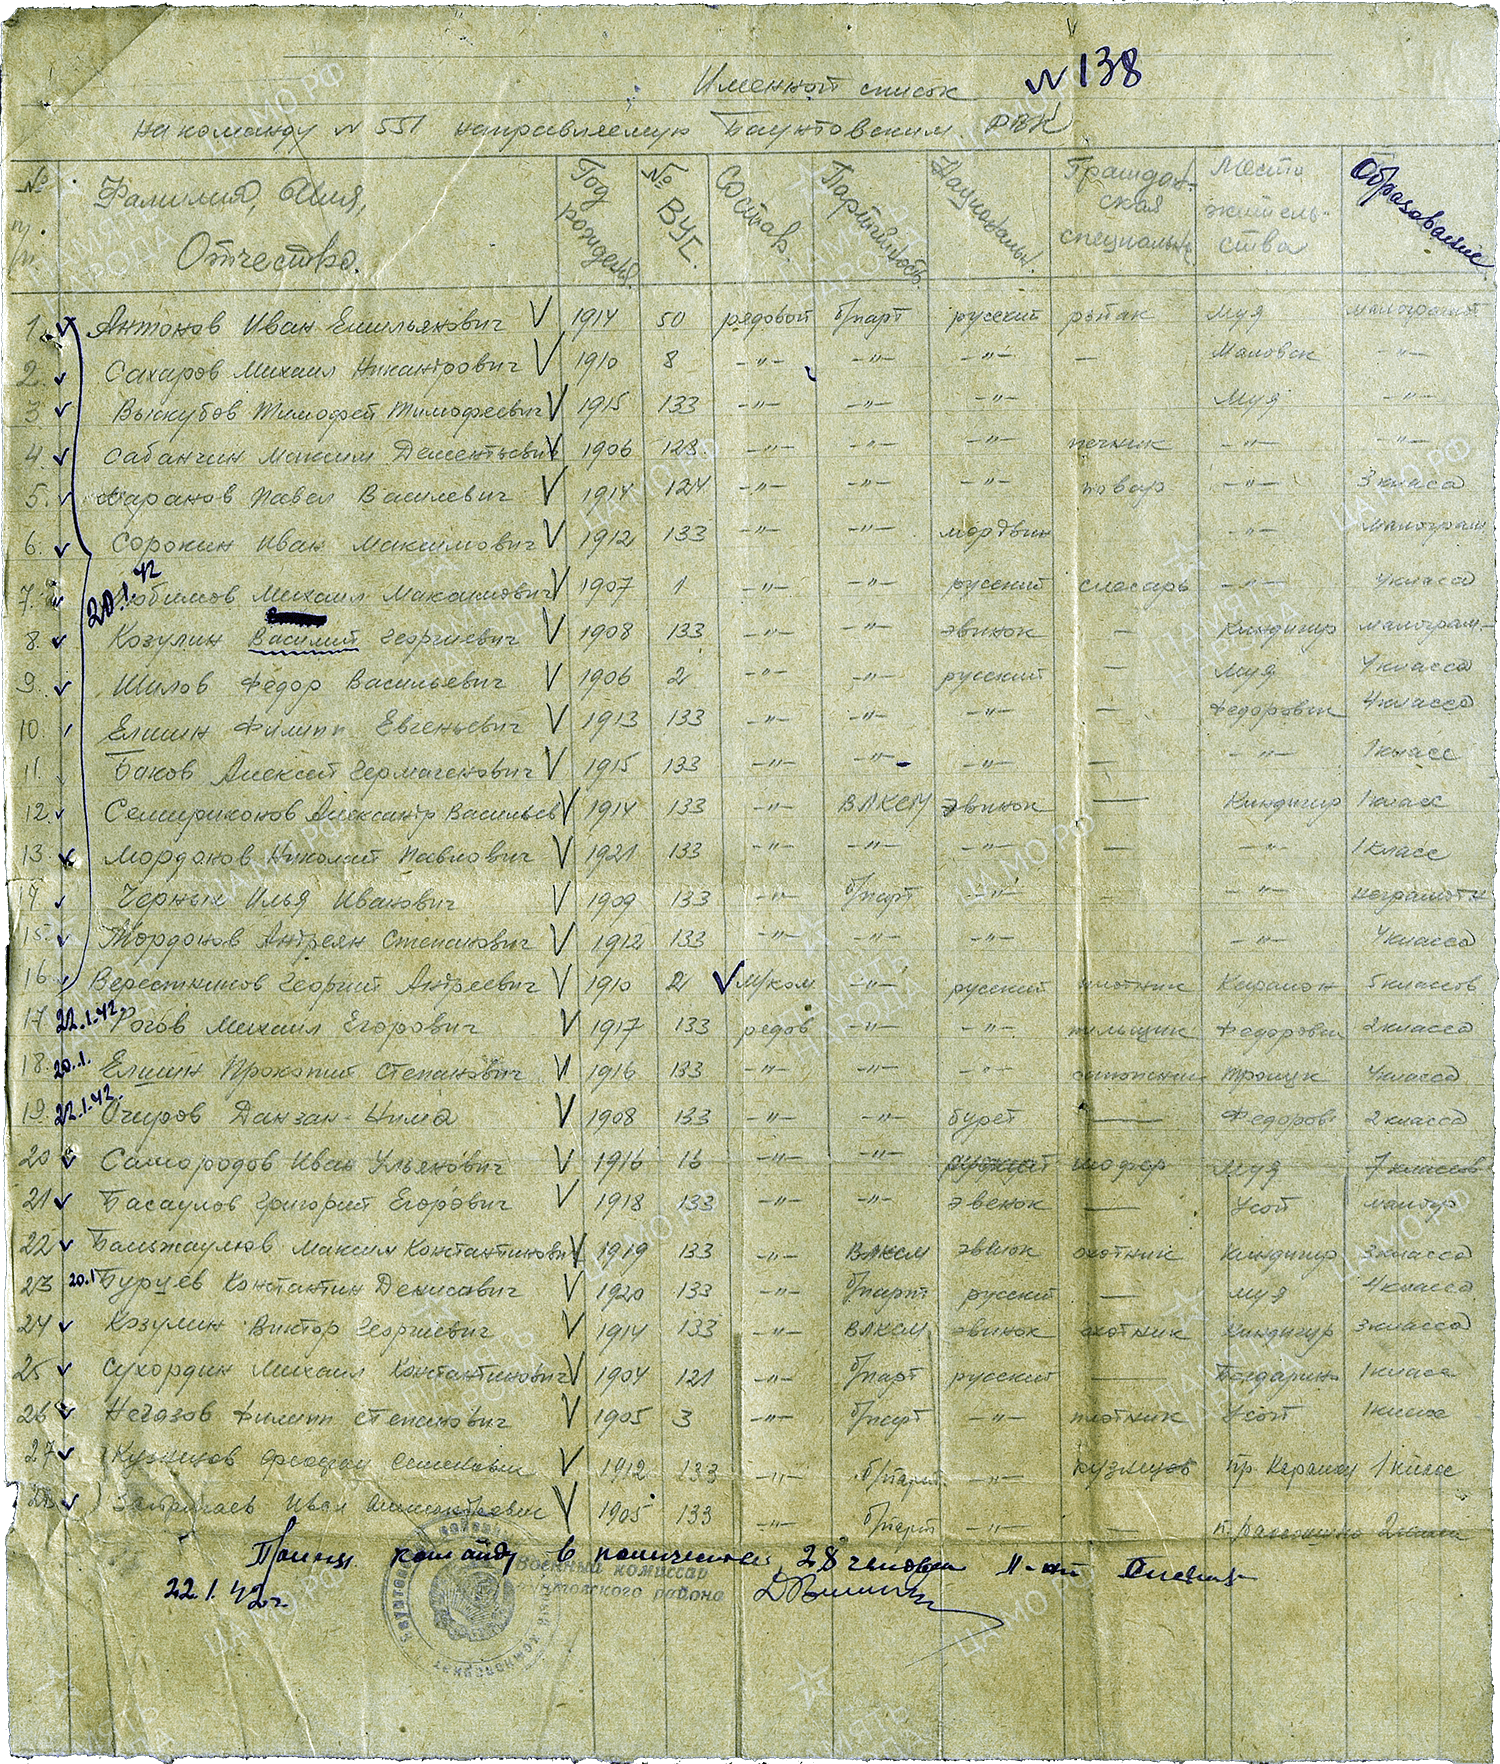 Именной список № 138
на команду № 551 направляемую Баунтовским РВК
№ п/п Фамилия, Имя, Отчество. Год рождения. № ВУС. Состав. Партийность. Националь. Граждан-ская специальн. Место житель-ства Образование.
1. Антонов Иван Емильянович V 1914 50 рядовой б/парт русский рыбак Муя малограмот
2. Сахаров Михаил Никантрович V 1910 8 -"- -"- -"- — Маловск -"-
3. Выкубов Тимофей Тимофеевич V 1915 133 -"- -"- -"- Муя -"-
4. Сабанчин Максим Дементьевич V 1906 128 -"- -"- -"- печник -"- -"-
5. Таранов Павел Василевич V 1914 124 -"- -"- -"- повар -"- 3 класса
6. Сорокин Иван Максимович V 1912 133 -"- -"- мордвин -"- малограм
20.1.42
7. Любимов Михаил Максимович V 1907 1 -"- -"- русский слесарь -"- 4 класса
8. Козулин Василий Георгиевич V 1908 133 -"- -"- эвинок — Киндигир малограм-
9. Шилов Фёдор Васильевич V 1906 2 -"- -"- русский — Муя 4 класса
10. Елшин Филипп Евгеньевич V 1913 133 -"- -"- -"- — Федоровск 4 класса
11. Баков Алексей Гермагенович V 1915 133 -"- -"- -"- — -"- 1 класс
12. Семириконов Александр Васильев V 1914 133 -"- ВЛКСМ эвинок — Киндигир 1 класс
13. Мордонов Николай Павлович V 1921 133 -"- -"- -"- — -"- 1 класс
14. Черных Илья Иванович V 1909 133 -"- б/парт -"- — -"- неграмотн
15. Мордонов Андреян Степанович V 1912 133 -"- -"- -"- -"- 4 класса
16. Версткинов Георгий Андреевич V 1910 2 V м/ком -"- русский плотник Карамон 5 классов
17 22.1.42 Рогов Михаил Егорович V 1917 133 редов -"- -"- пильщик Федоровск 2 класса
18. 20.1. Елшин Прокопий Степанович V 1916 133 -"- -"- -"- сапожник Троицк 4 класса
19. 22.1.42. Очиров Данзан-Нима V 1908 133 -"- -"- бурет — Федоров 2 класса
20 Самородов Иван Ульянович V 1916 16 -"- -"- русский шофер Муя 7 классов
21 Басаулов Григорий Егорович V 1918 133 -"- -"- эвенок — Усой малогр
22 Максим Константинович V 1919 133 -"- ВЛКСМ эвинок охотник Киндигир 3 класса
23 20.1 Бурцев Константин Денисович V 1920 133 -"- б/парт русский — Муя 4 класса
24 Козулин Виктор Георгиевич V 1914 133 -"- ВЛКСМ эвинок охотник Киндигир 3 класса
25 Сухордин Михаил Константинович V 1904 121 -"- б/парт русский — Богдарин 1 класс
26 Филипп Степанович V 1905 3 -"- б/парт -"- плотник Усой 1 класс
27 Кузнецов V 1912 133 -"- б/парт. -"- кузнецов пр. Карамон 1 класс
28 Иван V 1905 133 -"- б/парт -"- — 2 класса
Принял команду в количестве 28 человек Л-нт
22.1.42 г.
Военный комиссар
Баунтовского района
ЦАМО.РФ
ПАМЯТЬ НАРОДА